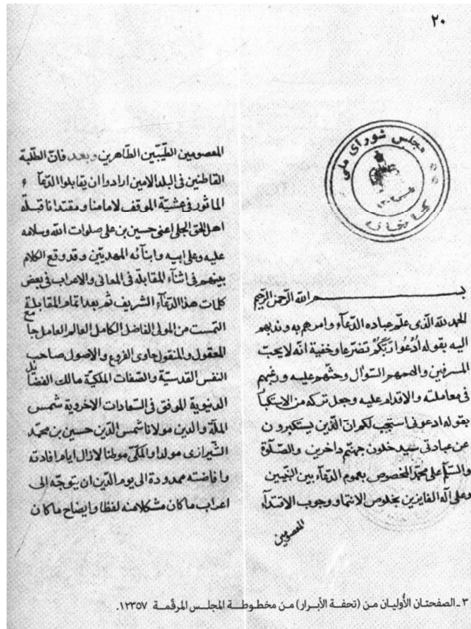 ٢٠
مجلس شورای ملی
کتابخانه
بسم الله الرحمن الرحیم
الحمد لله الذی علّم عباده الدعآء وامرهم به وندبهم
الیه بقوله ادعوا ربکم تضرعا وخفیة انه لا یحب
المسرفین والجمهم السؤال وحثهم علیه ورغبهم
فی معاملته والاقدام علیه وجعل ترکه من الاستکبا
بقوله ادعونی استجب لکم ان الذین یستکبرون
عن عبادتی سیدخلون جهنم داخرین والصلوة
والسلم علی محمد المخصوص بعموم الدعآء بین النبیین
وعلی آله الفایزین بخلوص الانتماء ووجوب الاقتدآء
المعصومین
المعصومین الطیبین الطاهرین وبعد فان الطلبة
القاطنین فی البلد الامین ارادوا ان یقابلوا الدعآء
الماثور فی عشیة الموقف لامامنا ومقتدانا قبلة
اهل الحق الجلی اعنی حسین بن علی صلوات الله وسلامه
علیه وعلی ابیه وابنآئه المهدیین وقد وقع الکلام
بینهم فی اثنآء المقابلة فی المعانی والاعراب فی بعض
کلمات هذا الدعآء الشریف ثم بعد اتمام المقابلة
التمست من المولی الفاضل الکامل العالم العامل جامع
المعقول والمنقول حاوی الفروع والاصول صاحب
النفس القدسیة والصفات الملکیة مالک الفضائل
الدنیویة الموفق فی السعادات الاخرویة شمس
الملة والدین مولانا شمس الدین حسین بن محمد
الشیرازی مولدا والمکی موطنا لا زال ایام افادته
وافاضته ممدودة الی یوم الدین ان یتوجه الی
اعراب ما کان مشکلا منه لفظا وایضاح ما کان
٣ ـ الصفحتان الأوليان من (تحفة الأبرار) من مخطوطة المجلس المرقّمة ١٢٣٥٧.